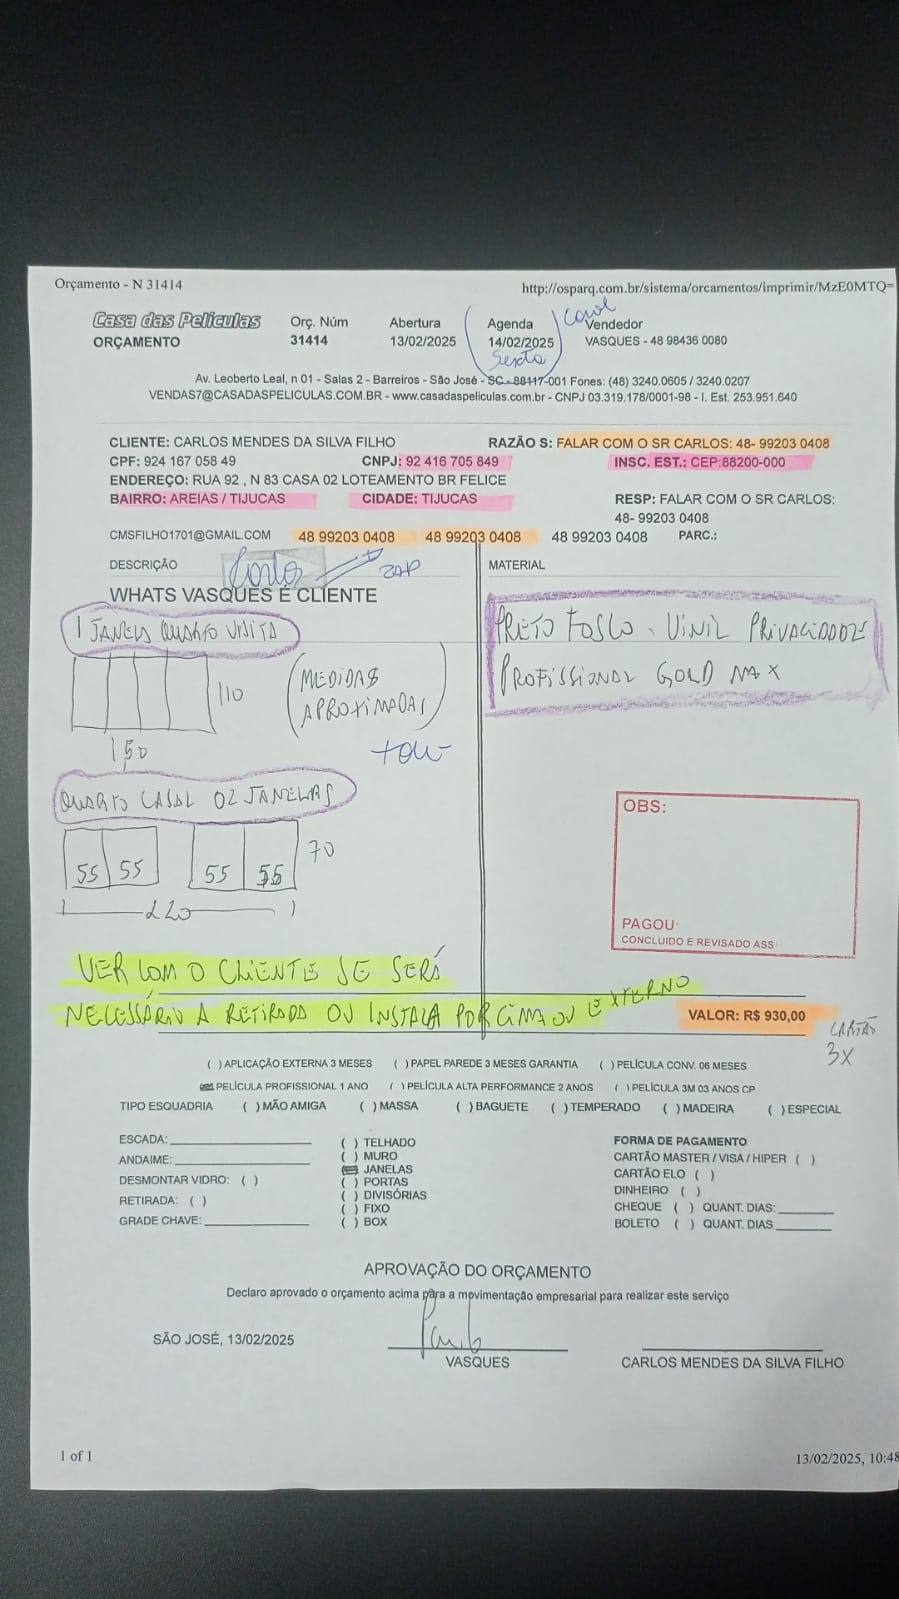 Orçamento - N 31414
http://osparq.com.br/sistema/orcamentos/imprimir/MzE0MTQ=
Casa das Películas
ORÇAMENTO
Orç. Núm
31414
Abertura
13/02/2025
Agenda
14/02/2025
Sexta
Carol
Vendedor
VASQUES - 48 98436 0080
Av. Leoberto Leal, n 01 - Salas 2 - Barreiros - São José - SC - 88117-001 Fones: (48) 3240.0605 / 3240.0207
VENDAS7@CASADASPELICULAS.COM.BR - www.casadaspeliculas.com.br - CNPJ 03.319.178/0001-98 - I. Est. 253.951.640
CLIENTE: CARLOS MENDES DA SILVA FILHO
RAZÃO S: FALAR COM O SR CARLOS: 48- 99203 0408
CPF: 924 167 058 49
CNPJ: 92 416 705 849
INSC. EST.: CEP:88200-000
ENDEREÇO: RUA 92 , N 83 CASA 02 LOTEAMENTO BR FELICE
BAIRRO: AREIAS / TIJUCAS
CIDADE: TIJUCAS
RESP: FALAR COM O SR CARLOS:
48- 99203 0408
CMSFILHO1701@GMAIL.COM 48 99203 0408 48 99203 0408 48 99203 0408 PARC.:
DESCRIÇÃO
Carlos
ZAP
MATERIAL
WHATS VASQUES É CLIENTE
1 JANELA QUARTO VISITA
PRETO FOSCO . VINIL PRIVACIDADE
PROFISSIONAL GOLD MAX
110
(MEDIDAS
APROXIMADAS)
150
QUARTO CASAL 02 JANELAS
55 55 55 55
70
220
OBS:
PAGOU:
CONCLUIDO E REVISADO ASS
VER COM O CLIENTE SE SERÁ
NECESSÁRIO A RETIRADA OU INSTALA POR CIMA OU EXTERNO
VALOR: R$ 930,00
CARTÃO
3X
( ) APLICAÇÃO EXTERNA 3 MESES ( ) PAPEL PAREDE 3 MESES GARANTIA ( ) PELÍCULA CONV. 06 MESES
PELÍCULA PROFISSIONAL 1 ANO ( ) PELÍCULA ALTA PERFORMANCE 2 ANOS ( ) PELÍCULA 3M 03 ANOS CP
TIPO ESQUADRIA ( ) MÃO AMIGA ( ) MASSA ( ) BAGUETE ( ) TEMPERADO ( ) MADEIRA ( ) ESPECIAL
ESCADA:
ANDAIME:
DESMONTAR VIDRO: ( )
RETIRADA: ( )
GRADE CHAVE:
( ) TELHADO
( ) MURO
JANELAS
( ) PORTAS
( ) DIVISÓRIAS
( ) FIXO
( ) BOX
FORMA DE PAGAMENTO
CARTÃO MASTER / VISA / HIPER ( )
CARTÃO ELO ( )
DINHEIRO ( )
CHEQUE ( ) QUANT. DIAS:
BOLETO ( ) QUANT. DIAS
APROVAÇÃO DO ORÇAMENTO
Declaro aprovado o orçamento acima para a movimentação empresarial para realizar este serviço
SÃO JOSÉ, 13/02/2025
VASQUES
CARLOS MENDES DA SILVA FILHO
1 of 1
13/02/2025, 10:48